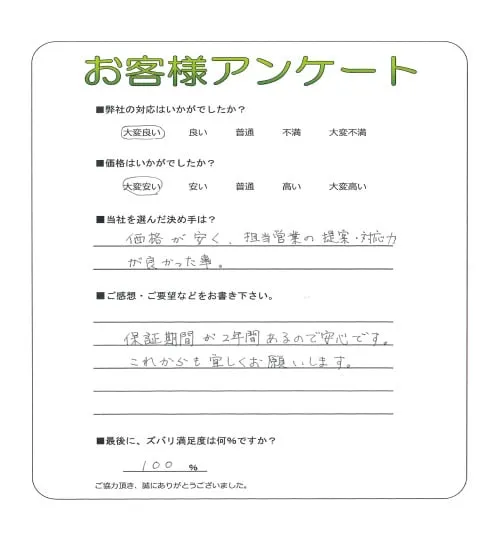 お客様アンケート
■弊社の対応はいかがでしたか?
大変良い 良い 普通 不満 大変不満
■価格はいかがでしたか?
大変安い 安い 普通 高い 大変高い
■当社を選んだ決め手は?
価格が安く、担当営業の提案・対応力
が良かった事。
■ご感想・ご要望などをお書き下さい。
保証期間が2年間あるので安心です。
これからも宜しくお願いします。
■最後に、ズバリ満足度は何%ですか?
100 %
ご協力頂き、誠にありがとうございました。